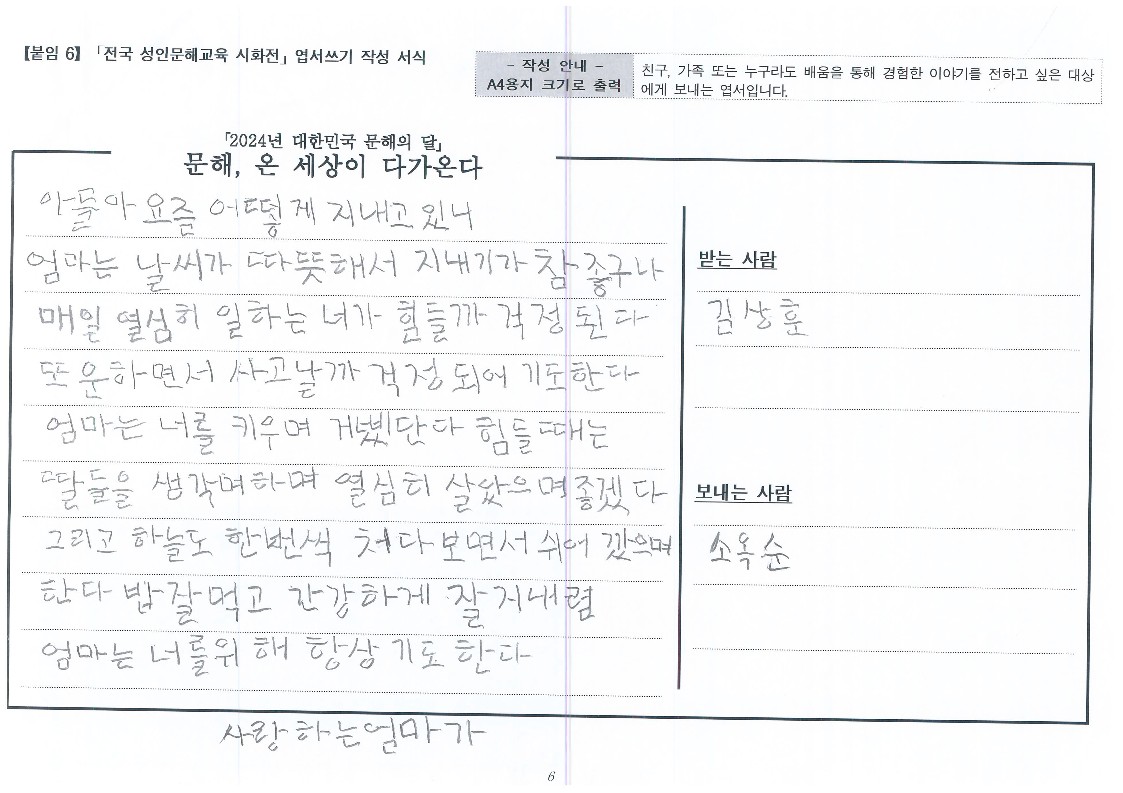 【붙임 6】 「전국 성인문해교육 시화전」 엽서쓰기 작성 서식
- 작성 안내 -
A4용지 크기로 출력
친구, 가족 또는 누구라도 배움을 통해 경험한 이야기를 전하고 싶은 대상
에게 보내는 엽서입니다.
「2024년 대한민국 문해의 달」
문해, 온 세상이 다가온다
아들아 요즘 어떻게 지내고 있니
엄마는 날씨가 따뜻해서 지내기가 참 좋구나
매일 열심히 일하는 너가 힘들까 걱정 된다
또 운하면서 사고날까 걱정 되어 기도한다
엄마는 너를 키우며 단다 힘들 때는
딸들을 생각며하며 열심히 살았으며좋겠다
그리고 하늘도 한번씩 처다보면서 쉬어 갔으며
한다 밥잘먹고 간강하게 잘지내렴
엄마는 너를위해 항상 기도 한다
사랑하는엄마가
받는 사람
김상훈
보내는 사람
소옥순
6